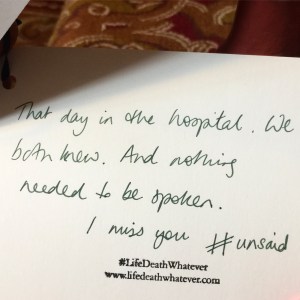 That day in the hospital. We
both knew. And nothing
needed to be spoken.
I miss you #unsaid
#LifeDeathWhatever
www.lifedeathwhatever.com